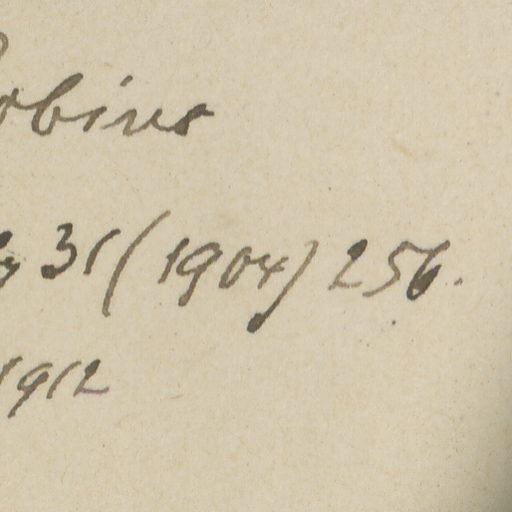 obius
31 (1904) 256.
1912